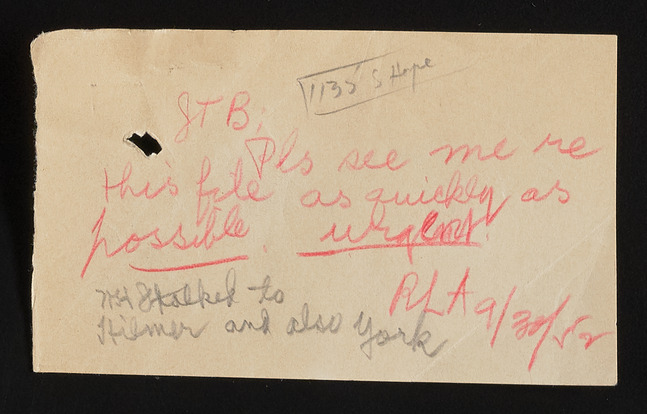 1135 S Hope
STB,
Pls see me re
this file as quickly as
possible. urgent!
talked to
Hilmer and also York
RLA 9/30/52